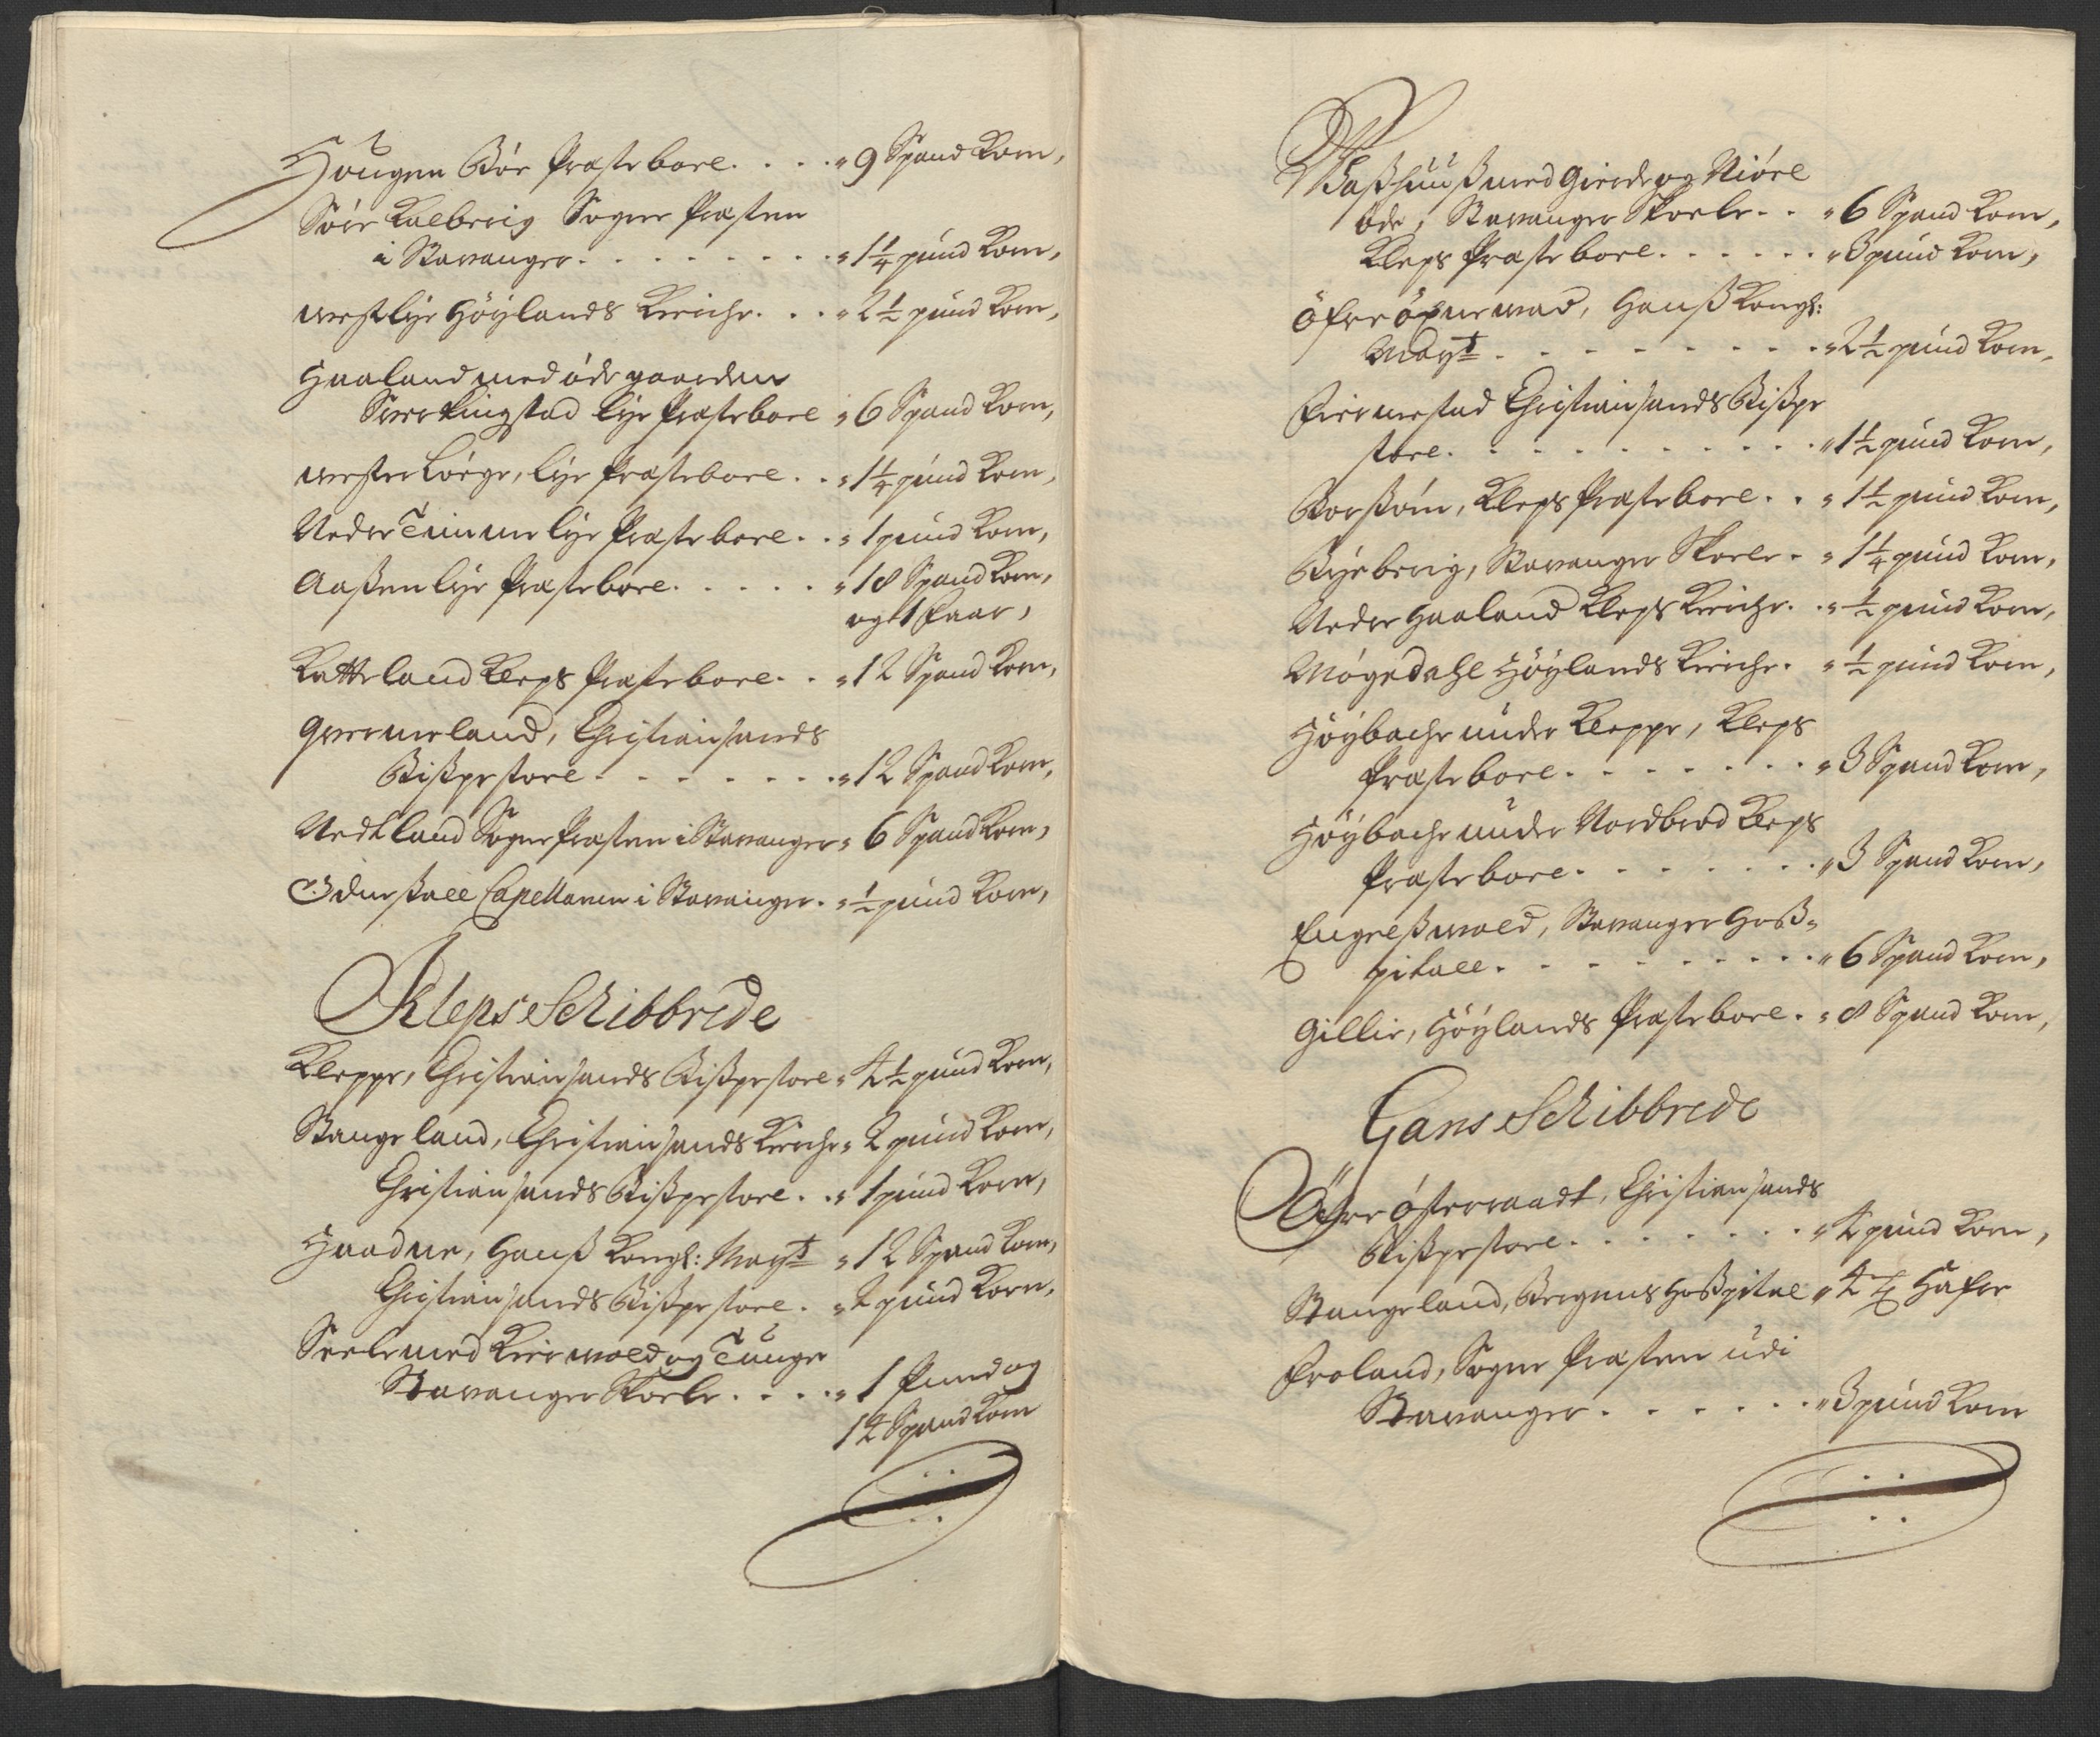 Hougen Böe Præstebole. . . . „ 9 Spand Korn,
Söer Kalberig Sogne Præsten
i Stavanger. . . . . . . . . „ 1 1/4 pund Korn,
westlye Höylands Kirche. . . „ 2 1/2 pund Korn,
Haaland med öde gaarden
Sverkingstad Lye Præstebole „ 6 Spand Korn,
wester Löege, Lye Præstebole. . „ 1 1/4 pund Korn,
Neder Timme Lye Præstebole. . „ 1 pund Korn,
Aaßen Lye Præstebole. . . . . „ 18 Spand Korn,
og 1 Faar,
Katteland Kleps Præstebole. . „ 12 Spand Korn,
Qverneland, Christiansands
Bißpestoel . . . . . . . „ 12 Spand Korn,
Nedland Sogne Præsten i Stavanger „ 6 Spand Korn,
Ødenstall Capellanen i Stavanger. „ 1/2 pund Korn,
Kleps Schibbrede
Kleppe, Christiansands Bißpestoel „ 4 1/2 pund Korn,
Stangeland, Christiansands Kirche „ 2 pund Korn,
Christiansands Bißpestoel. . „ 1 pund Korn,
Haadne, Hanß Kongl: Mayt „ 12 Spand Korn,
Christiansands Bißpestoel. „ 2 pund Korn,
Seele med Kiervold og Tunge
Stavanger Skoele. . . . „ 1 Pund og
14 Spand Korn
Waßhuuß med Gierde og Niöre
öde, Stavanger Skoele. . „ 6 Spand Korn,
Kleps Præstebole. . . . . . „ 3 pund Korn,
Öfre öxnevad, Hanß Kongl:
Mayt . . . . . . . . . „ 2 1/2 pund Korn,
Fiermestad Christiansands Bißpe
stoel. . . . . . . . . . . „ 1 1/2 pund Korn,
Borßöm, Kleps Præstebole. . „ 1 1/2 pund Korn,
Byeberig, Stavanger Skoele. „ 1 1/4 pund Korn,
Neder Haaland Kleps Kirche. „ 1/2 pund Korn,
Mögedahl Höylands Kirche. „ 1/2 pund Korn,
Höybache under Kleppe, Kleps
Præstebole. . . . . . . „ 3 Spand Korn,
Höybache under Nordbröd Kleps
Præstebole. . . . . . . „ 3 Spand Korn,
Engelßvold, Stavanger Hoß-
pitall. . . . . . . . . . „ 6 Spand Korn,
Gillie, Höylands Præstebole. „ 8 Spand Korn,
Gans Schibbrede
Öfre österaadt, Christiansands
Bißpestoel. . . . . . . „ 4 pund Korn,
Stangeland, Bergens Hoßpital „ 4 Hafre
Froland, Sogne Præsten udi
Stavanger. . . . . . „ 3 pund Korn